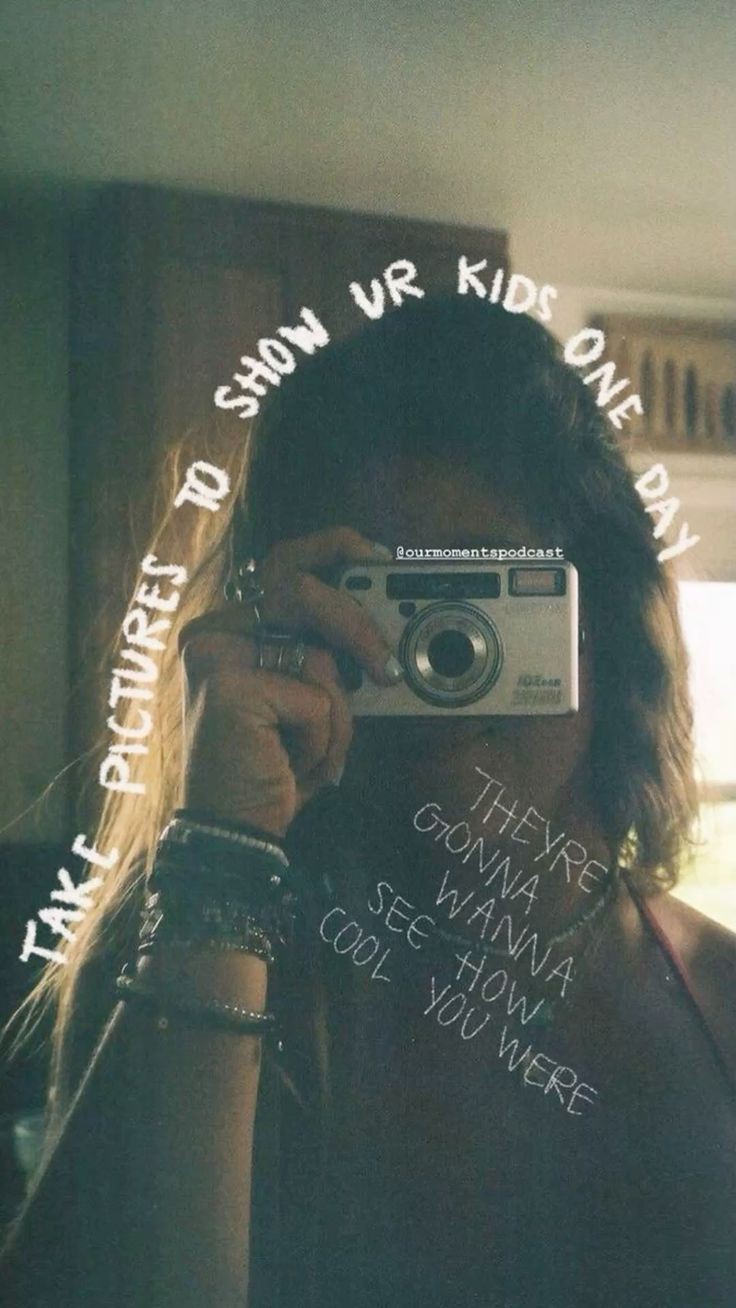 TAKE PICTURES TO SHOW UR KIDS ONE DAY
@ourmomentspodcast
THEYRE
GONNA
WANNA
SEE HOW
COOL YOU WERE